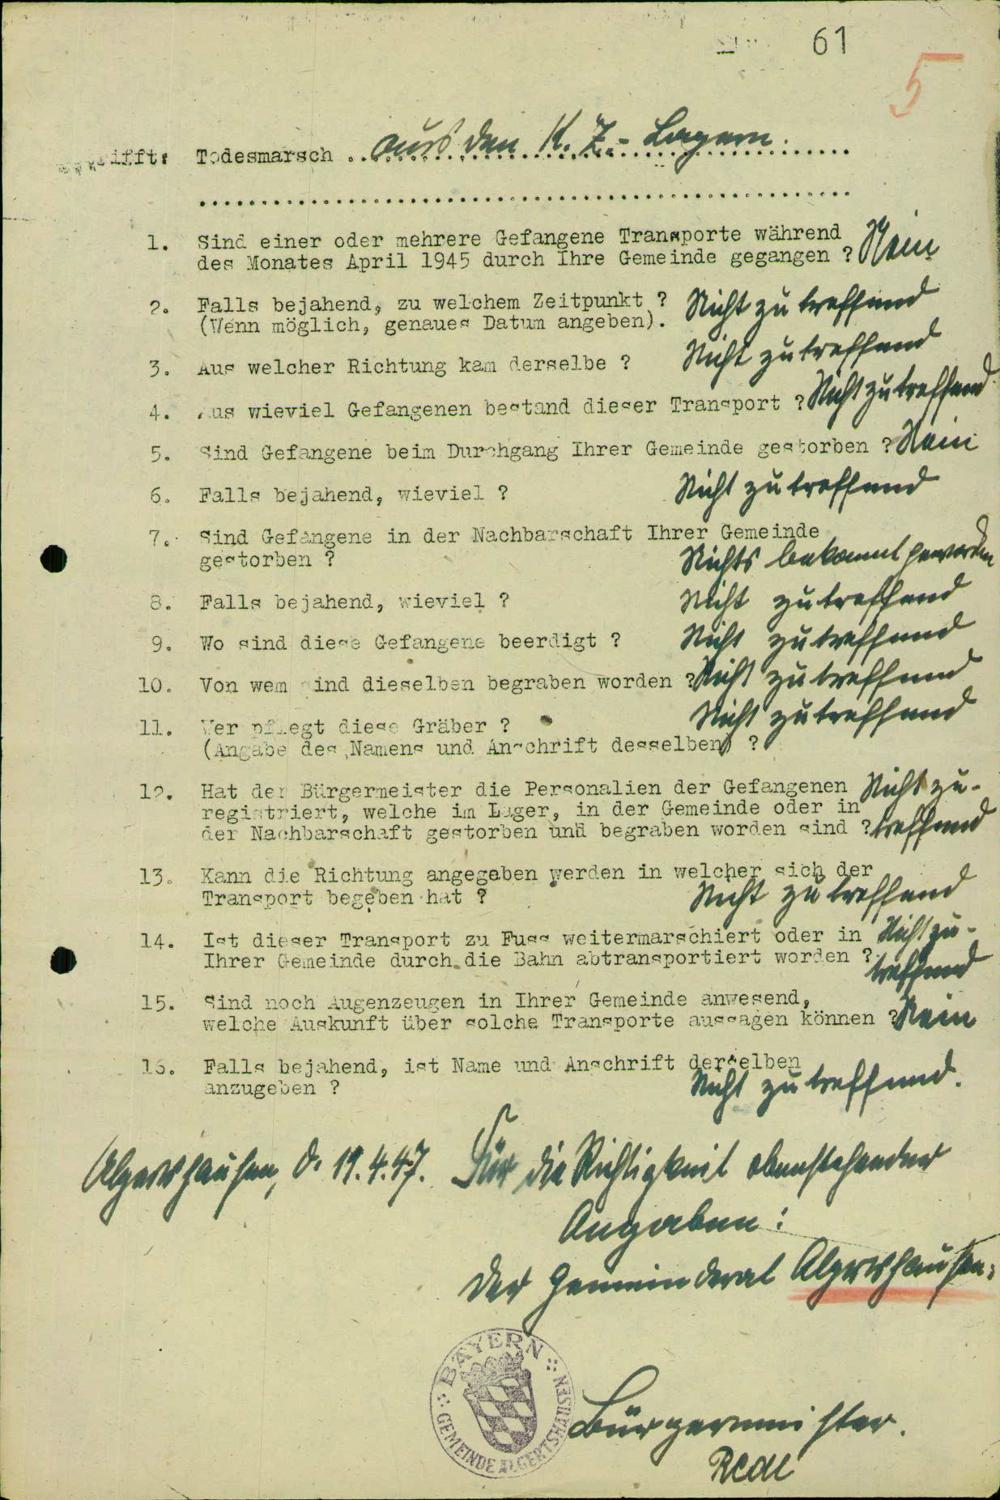 61
5
Todesmarsch ..aus den K.Z.-Lagern.
1. Sind einer oder mehrere Gefangene Transporte während
des Monates April 1945 durch Ihre Gemeinde gegangen ? Nein
2. Falls bejahend, zu welchem Zeitpunkt ? Nicht zutreffend
(Wenn möglich, genaues Datum angeben).
3. Aus welcher Richtung kam derselbe ? Nicht zutreffend
4. Aus wieviel Gefangenen bestand dieser Transport ? Nicht zutreffend
5. Sind Gefangene beim Durchgang Ihrer Gemeinde gestorben ? Nein
6. Falls bejahend, wieviel ? Nicht zutreffend
7. Sind Gefangene in der Nachbarschaft Ihrer Gemeinde
gestorben ? Nichts bekannt geworden
8. Falls bejahend, wieviel ? Nicht zutreffend
9. Wo sind diese Gefangene beerdigt ? Nicht zutreffend
10. Von wem sind dieselben begraben worden ? Nicht zutreffend
11. Wer pflegt diese Gräber ? Nicht zutreffend
(Angabe des Namens und Anschrift desselben) ?
12. Hat der Bürgermeister die Personalien der Gefangenen Nicht zu-
registriert, welche im Lager, in der Gemeinde oder in
der Nachbarschaft gestorben und begraben worden sind ? treffend
13. Kann die Richtung angegeben werden in welcher sich der
Transport begeben hat ? Nicht zutreffend
14. Ist dieser Transport zu Fuss weitermarschiert oder in Nicht zu-
Ihrer Gemeinde durch die Bahn abtransportiert worden ? treffend
15. Sind noch Augenzeugen in Ihrer Gemeinde anwesend,
welche Auskunft über solche Transporte aussagen können ? Nein
16. Falls bejahend, ist Name und Anschrift derselben
anzugeben ? Nicht zutreffend.
Algertshausen, d. 19.4.47. Für die Richtigkeit obenstehender
Angaben:
Der Gemeinderat Algertshausen:
BAYERN
GEMEINDE ALGERTSHAUSEN
Bürgermeister.